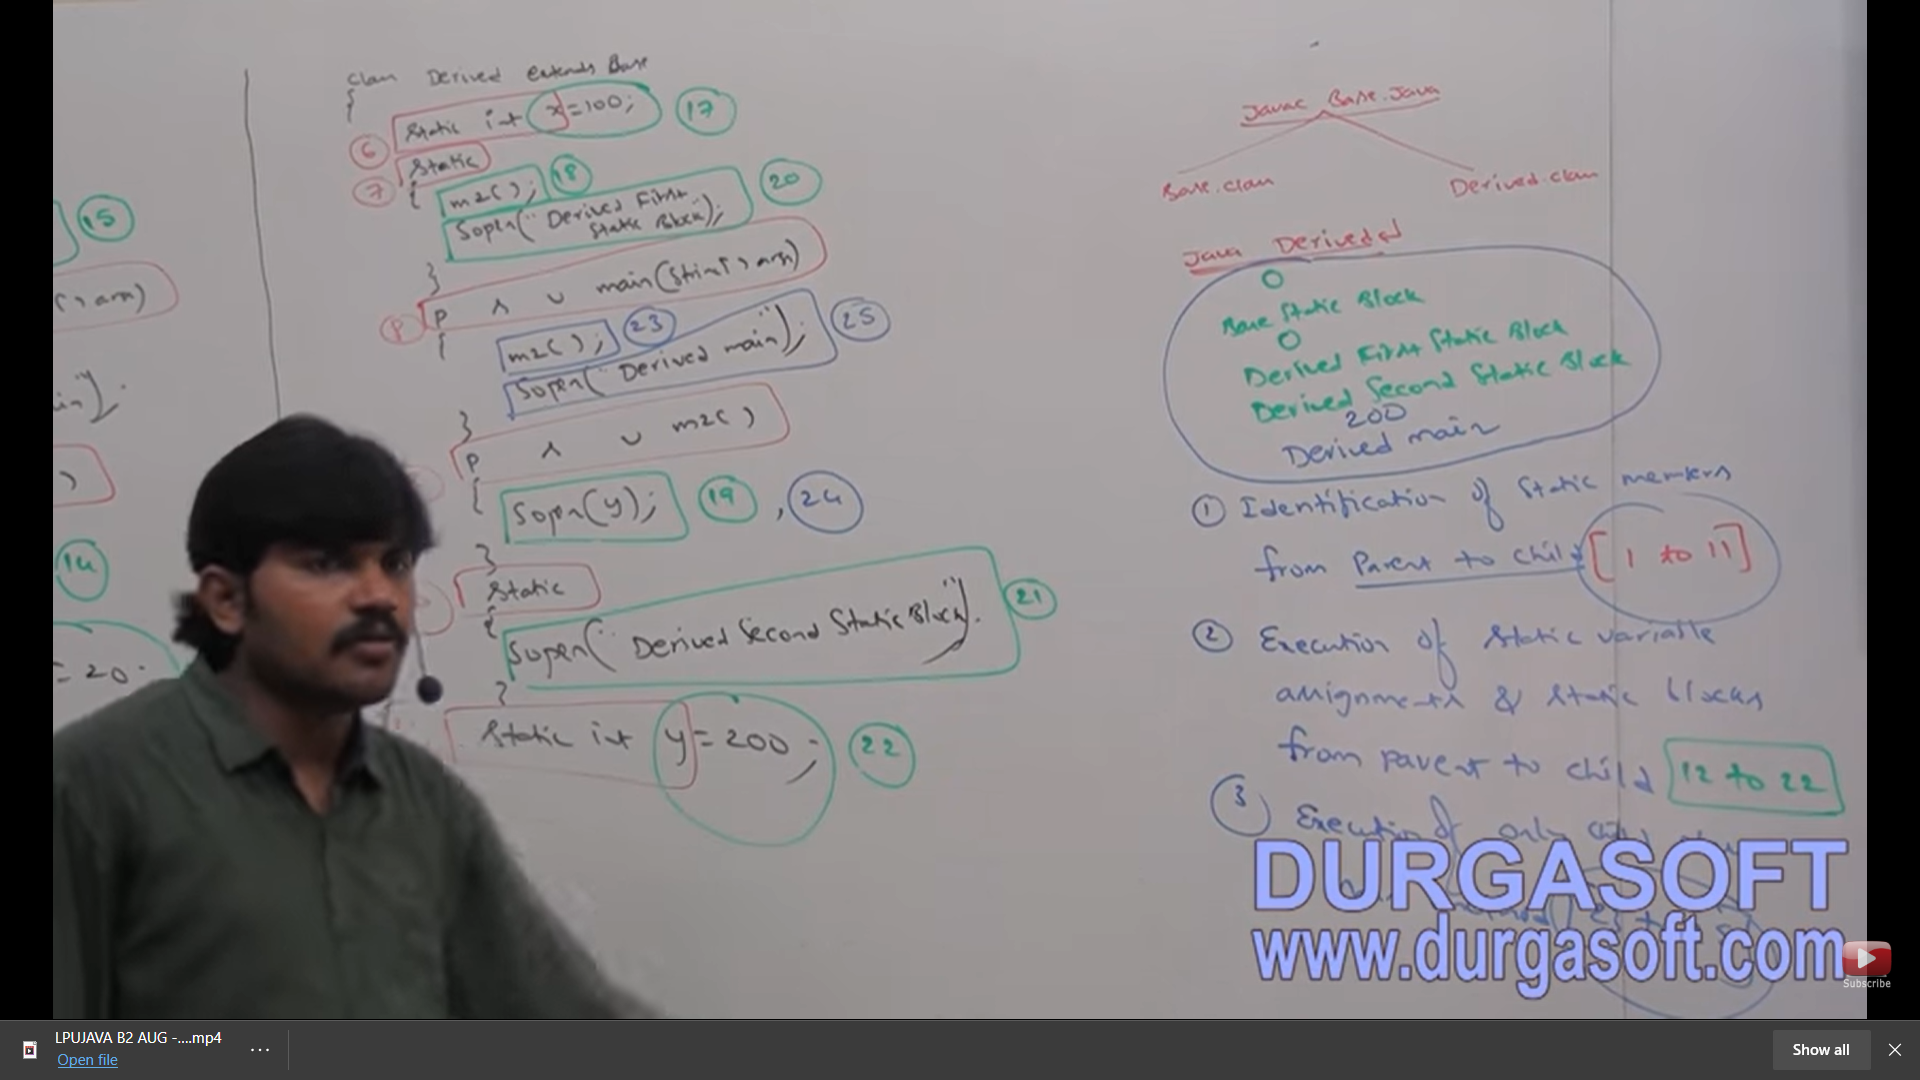 15
( ) arn)
in").
)
14
= 20;
clan Derived extends Base
{
6 static int x=100; 17
7 static
{ m2(); 18
Sopln("Derived First 20
static Block");
}
8 p s v main(String[] args)
{ m2(); 23
Sopln("Derived main"); 25
}
p s v m2()
{ Sopln(y); 19, 24
}
static
{
Sopln("Derived Second Static Block"). 21
}
static int y=200; 22
Javac Base.Java
Base.clan Derived.clan
Java Derived↵
0
Base Static Block
0
Derived First Static Block
Derived Second Static Block
200
Derived main
① Identification of static members
from Parent to child [1 to 11]
② Execution of static variable
assignments & static blocks
from parent to child 12 to 22
3 Execution of only child
DURGASOFT
www.durgasoft.com
Subscribe
LPUJAVA B2 AUG -....mp4
Open file
...
Show all